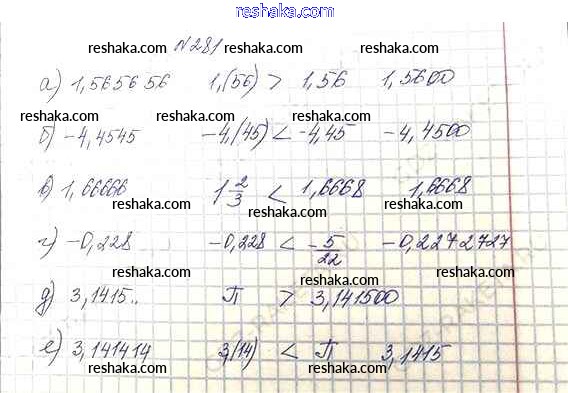 www.reshaka.com
reshaka.com reshaka.com reshaka.com
№281
а) 1,565656 1,(56) > 1,56 1,5600
reshaka.com reshaka.com reshaka.com
б) -4,4545 -4,(45) < -4,45 -4,4500
reshaka.com reshaka.com reshaka.com
в) 1,66666 1 2/3 < 1,6668 1,6668
reshaka.com reshaka.com reshaka.com
г) -0,228 -0,228 < -5/22 -0,2272727
reshaka.com reshaka.com reshaka.com
д) 3,1415.. П > 3,141500
reshaka.com reshaka.com reshaka.com
е) 3,141414 3,(14) < П 3,1415
reshaka.com reshaka.com reshaka.com